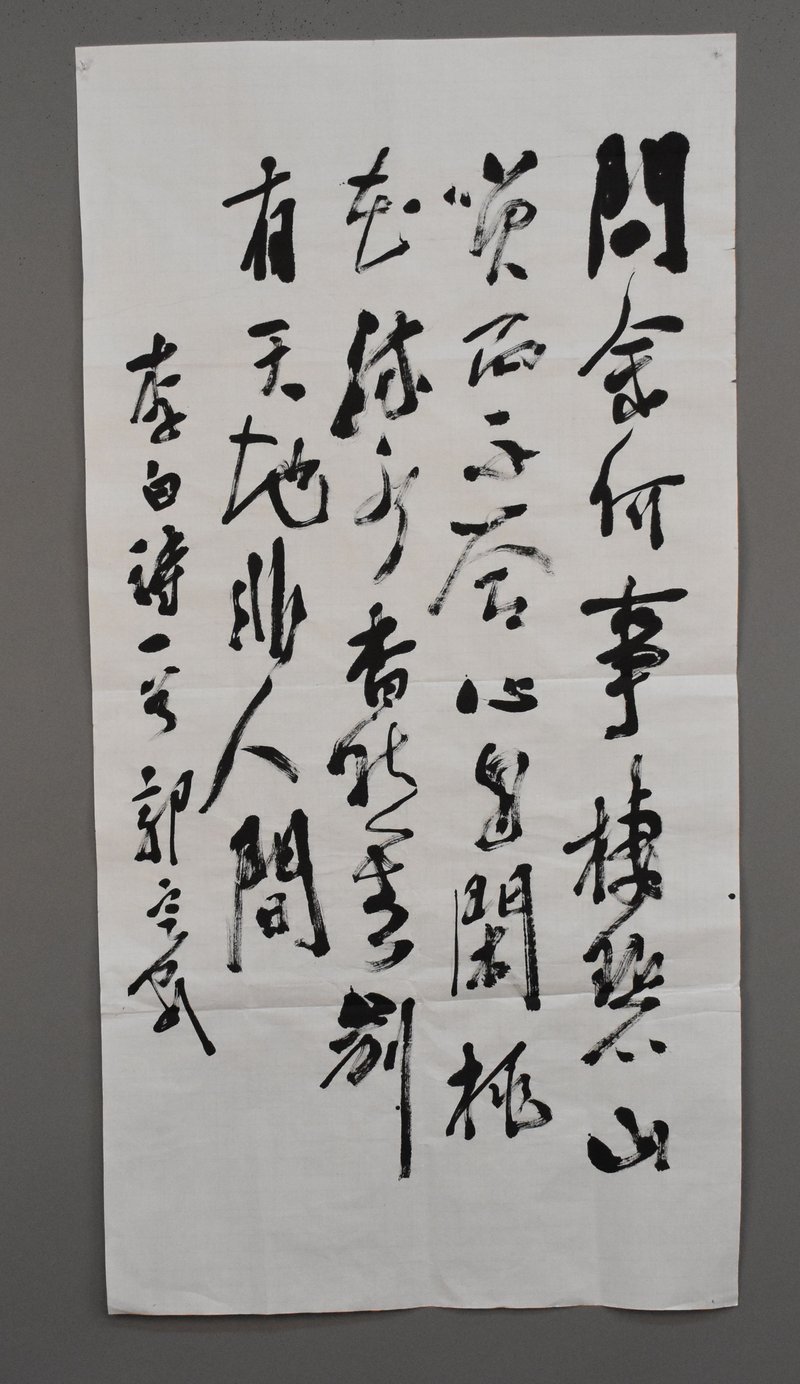 問余何事棲碧山
笑而不答心自閑桃
花流水杳然去別
有天地非人間
李白詩一首 郭